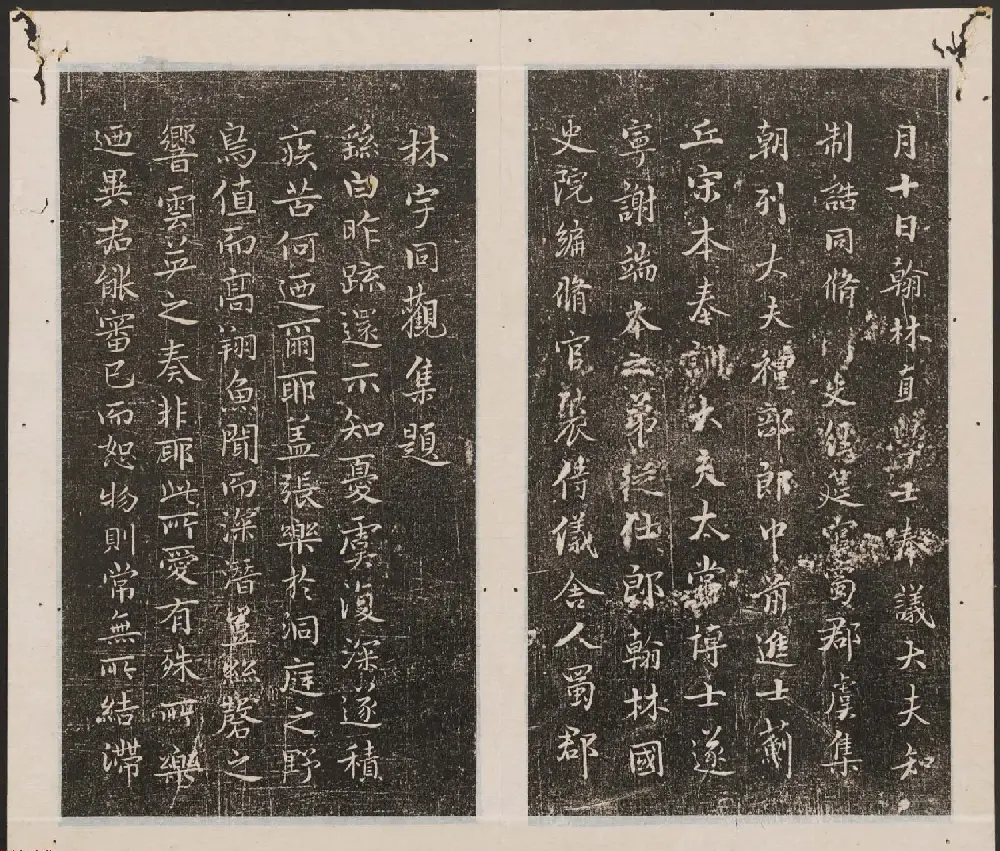 月十日翰林直學士奉議大夫知
制誥同脩國史經筵官富郡虞集
朝列大夫禮部郎中前進士薊
丘宋本奉訓大夫太常博士遂
寧謝端本之弟從仕郎翰林國
史院編脩官褧侍儀舍人蜀郡
林宇同觀集題
繇白昨疏還示知憂虞復深遂積
疾苦何迺爾耶盖張樂於洞庭之野
鳥值而高翔魚聞而深潛豈絲磬之
響雲英之奏非耶此所愛有殊所樂
迺異君能審已而恕物則常無所結滯